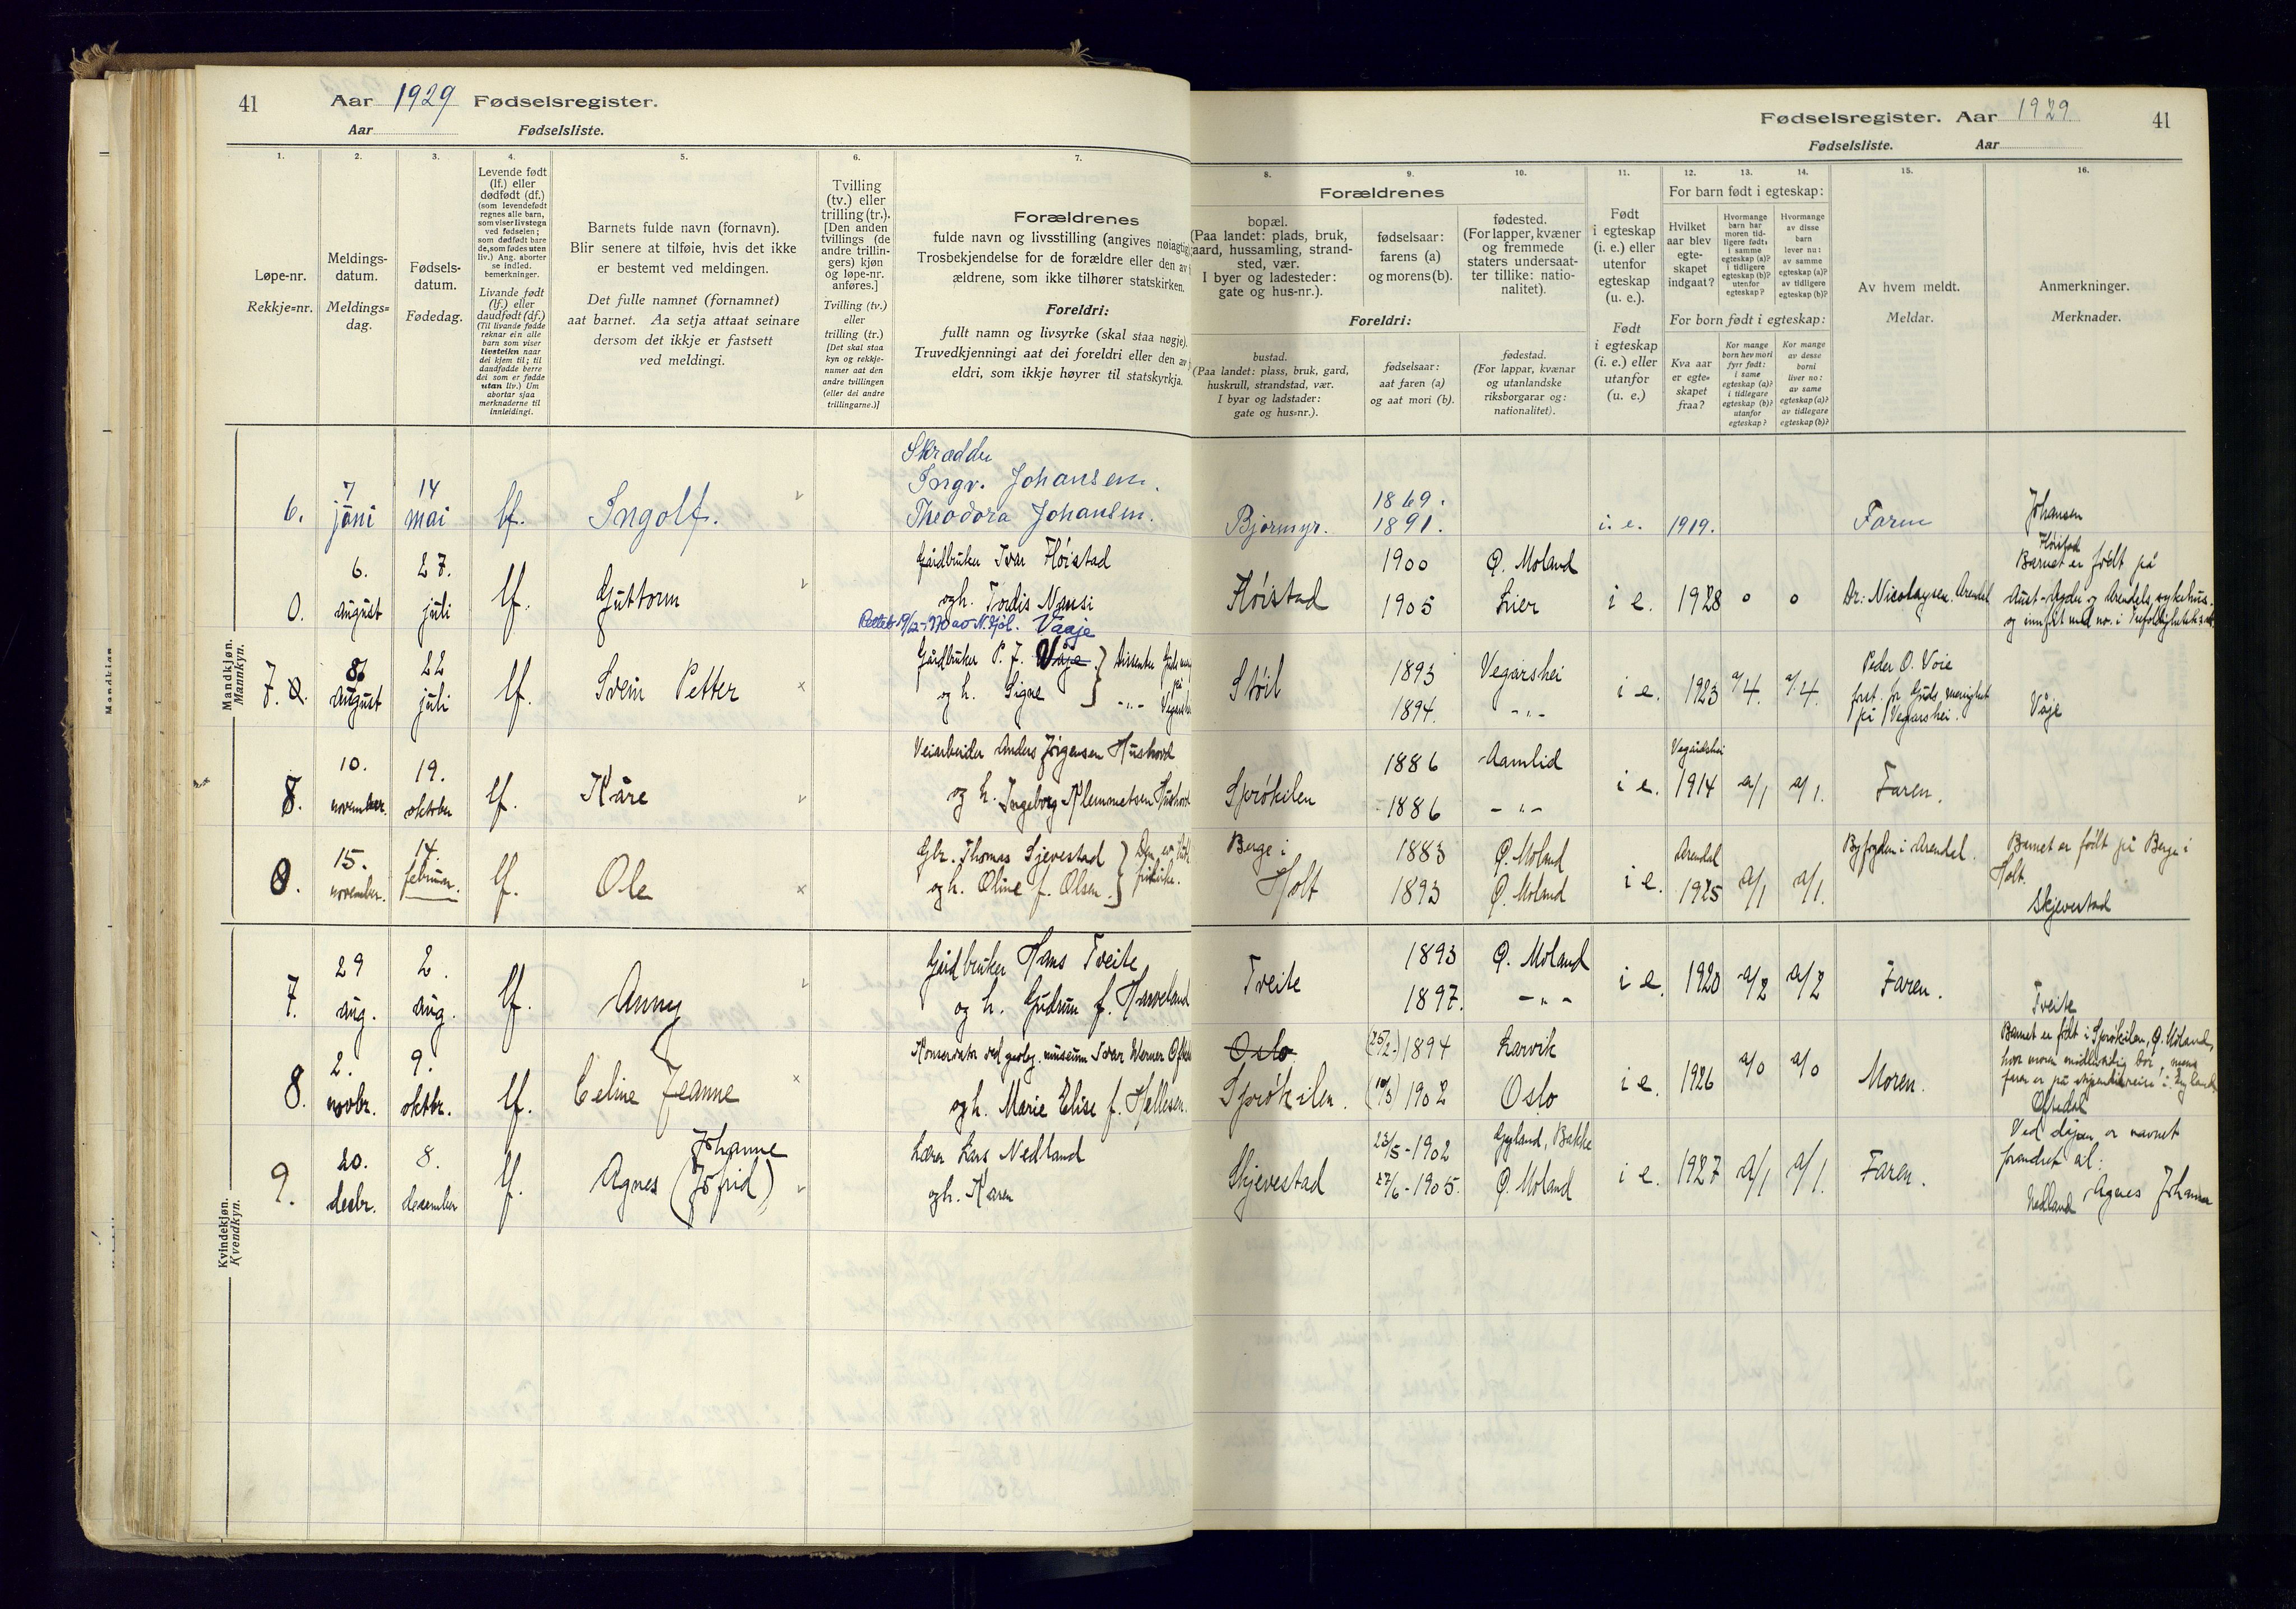 41 Aar 1929 Fødselsregister.
Aar Fødselsliste.
1. 2. 3. 4. 5. 6. 7.
Løpe-nr.
Rekkje-nr.
Meldings-
datum.
Meldings-
dag.
Fødsels-
datum.
Fødedag.
Levende født
(lf.) eller
dødfødt (df.)
(som levendefødt
regnes alle barn,
som viser livstegn
ved fødselen;
som dødfødt bare
de, som fødes uten
liv.) Ang. aborter
se indled.
bemerkninger.
Livande født
(lf.) eller
daudfødt (df.)
(Til livande fødde
reknar ein alle
barn som viser
livsteikn naar
dei kjem til; til
daudfødde berre
dei som er fødde
utan liv.) Um
abortar sjaa
merknaderne til
innleidingi.
Barnets fulde navn (fornavn).
Blir senere at tilføie, hvis det ikke
er bestemt ved meldingen.
Det fulle namnet (fornamnet)
aat barnet. Aa setja attaat seinare
dersom det ikkje er fastsett
ved meldingi.
Tvilling
(tv.) eller
trilling (tr.).
[Den anden
tvillings (de
andre trillin-
gers) kjøn
og løpe-nr.
anføres.]
Tvilling (tv.)
eller
trilling (tr.)
[Det skal staa
kyn og rekkje-
numer aat den
andre tvillingen
(eller dei andre
trillingarne.)]
Forældrenes
fulde navn og livsstilling (angives nøiagtig)
Trosbekjendelse for de forældre eller den av
ældrene, som ikke tilhører statskirken.
Foreldri:
fullt namn og livsyrke (skal staa nøgje).
Truvedkjenningi aat dei foreldri eller den av
eldri, som ikkje høyrer til statskyrkja.
Mandkjøn.
Mannkyn.
6. 7 juni 14 mai lf. Ingolf.
Skrædder
Ingv. Johansen.
Theodora Johansen.
0. 6. august 27. juli lf. Guttorm
Gårdbruker Ivar Høistad
og h. Tordis Nansi
Vaaje
7. 8. august 22 juli lf. Svein Petter
Gårdbruker P. J. Våje
og h. Signe
Dissenter Guds men
på
Vegarshei
8. 10. november. 19. oktober lf. Kåre
Veiarbeider Anders Jørgensen Hushovd
og h. Ingeborg Klemmetsen Hushovd
0. 15. november. 14. februar. lf. Ole
Gbr. Thomas Sjevestad
og h. Oline f. Olsen.
frikirke.
Kvindekjøn.
Kvendkyn.
7. 29 aug. 2. aug. lf. Anny
Gårdbruker Hans Tveite
og h. Gudrun f. Harveland
8. 2. novbr. 9. oktbr. lf. Celine Jeanne
Konservator ved geolog. museum Ivar Werner Ofte
og h. Marie Elise f. Hellesen.
9. 20. desbr. 8. desember lf. Agnes (Jofrid) Johanne
Lærer Lars Nedland
og h. Karen
Fødselsregister. Aar 1929 41
Fødselsliste. Aar
8. 9. 10. 11. 12. 13. 14. 15. 16.
Forældrenes
bopæl.
(Paa landet: plads, bruk,
gaard, hussamling, strand-
sted, vær.
I byer og ladesteder:
gate og hus-nr.).
fødselsaar:
farens (a)
og morens (b).
fødested.
(For lapper, kvæner
og fremmede
staters undersaat-
ter tillike: natio-
nalitet).
Foreldri:
bustad.
(Paa landet: plass, bruk, gard,
huskrull, strandstad, vær.
I byar og ladstader:
gate og hus-nr.).
fødselsaar:
aat faren (a)
og aat mori (b).
fødestad.
(For lappar, kvænar
og utanlandske
riksborgarar og:
nationalitet).
Født
i egteskap
(i. e.) eller
utenfor
egteskap
(u. e.).
Født
i egteskap
(i. e.) eller
utanfor
(u. e.)
For barn født i egteskap:
Hvilket
aar blev
egte-
skapet
indgaat?
Hvormange
barn har
moren tid-
ligere født:
i samme
egteskap (a)?
i tidligere
egteskap (b)?
utenfor
egteskap?
Hvormange
av disse
barn
lever nu:
av samme
egteskap (a)?
av tidligere
egteskap (b)?
For born født i egteskap:
Kva aar
er egte-
skapet
fraa?
Kor mange
born hev mori
fyrr født:
i same
egteskap (a)?
i tidlegare
egteskap (b)?
utanfor
egteskap?
Kor mange
av desse
borni
liver no:
av same
egteskap (a)?
av tidlegare
egteskap (b)?
Av hvem meldt.
Meldar.
Anmerkninger.
Merknader.
Bjormyr. 1869. 1891. i. e. 1919. Faren Johansen
Høistad 1900 1905 Ø. Moland Lier i e. 1928 0 0 Dr: Nicolaysen. Arendal
Høistad
Barnet er født på
Aust-Agder og Arendals sykehus.
Støil 1893 1894. Vegarshei - " - i e. 1923 a/4. a/4.
Peder O. Voie
frst. fr. Guds menighet
på Vegarshei.
Våje
Sprøkilen 1886 1886 Aamlid - " - i e. Vegårdshei 1914 a/1 a/1. Faren.
Berge i Holt 1883 1893 Ø. Moland Ø. Moland i e. Arendal 1925 a/1 a/1. Byfogden i Arendal.
Barnet er født på Berge i
Holt.
Skjevestad
Tveite 1893 1897. Ø. Moland - " - i e. 1920 a/2 a/2 Faren. Tveite
Oslo Sprøkilen. (25/2-) 1894 1902 Larvik Oslo i e. 1926 a/0 a/0 Moren.
Barnet er født i Sprøkilen, Ø. Moland,
hvor moren midlertidig bor, mens
Oftedal
Skjevestad 23/5-1902 27/6-1905. Gyland, Bakke Ø. Moland i e. 1927 a/1 a/1. Faren.
Ved dåpen er navnet
forandret til:
Agnes Johanne
Nedland